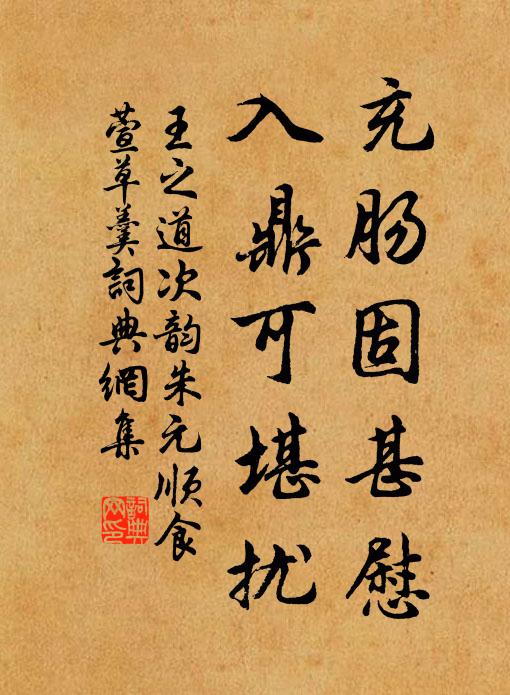 充肠固甚慰
入鼎可堪扰
王之道次韵朱元顺食
萱草羹詞典網集
詞典
网印